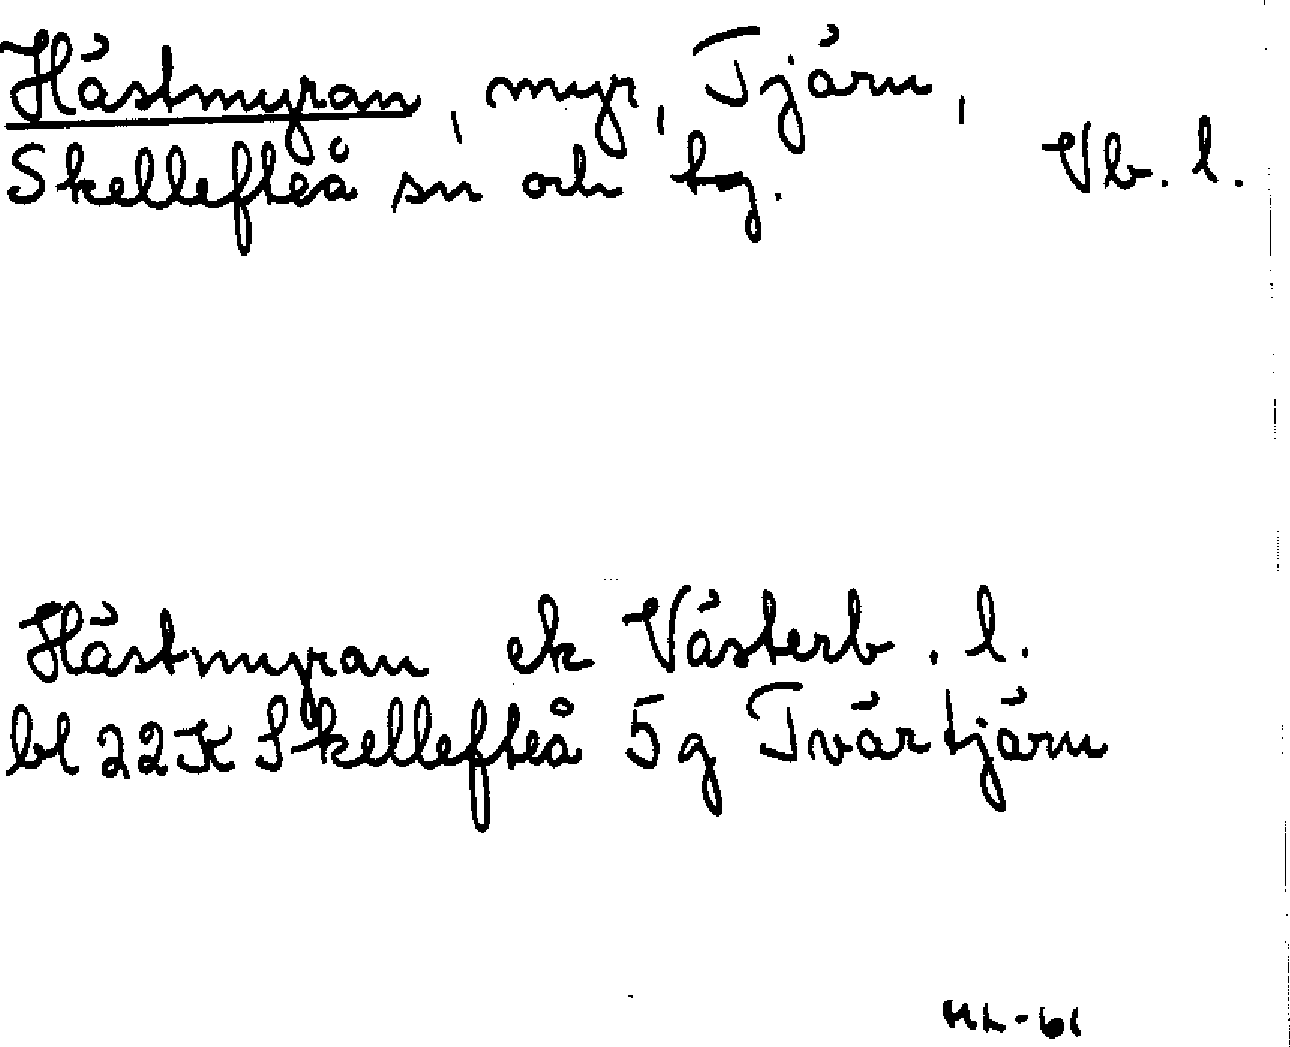 Hästmyran, myr, Tjärn,
Skellefteå sn och tg. Vb. l.
Hästmyran ek Västerb. l.
bl 22K Skellefteå 5g Tvärtjärn
ML-61